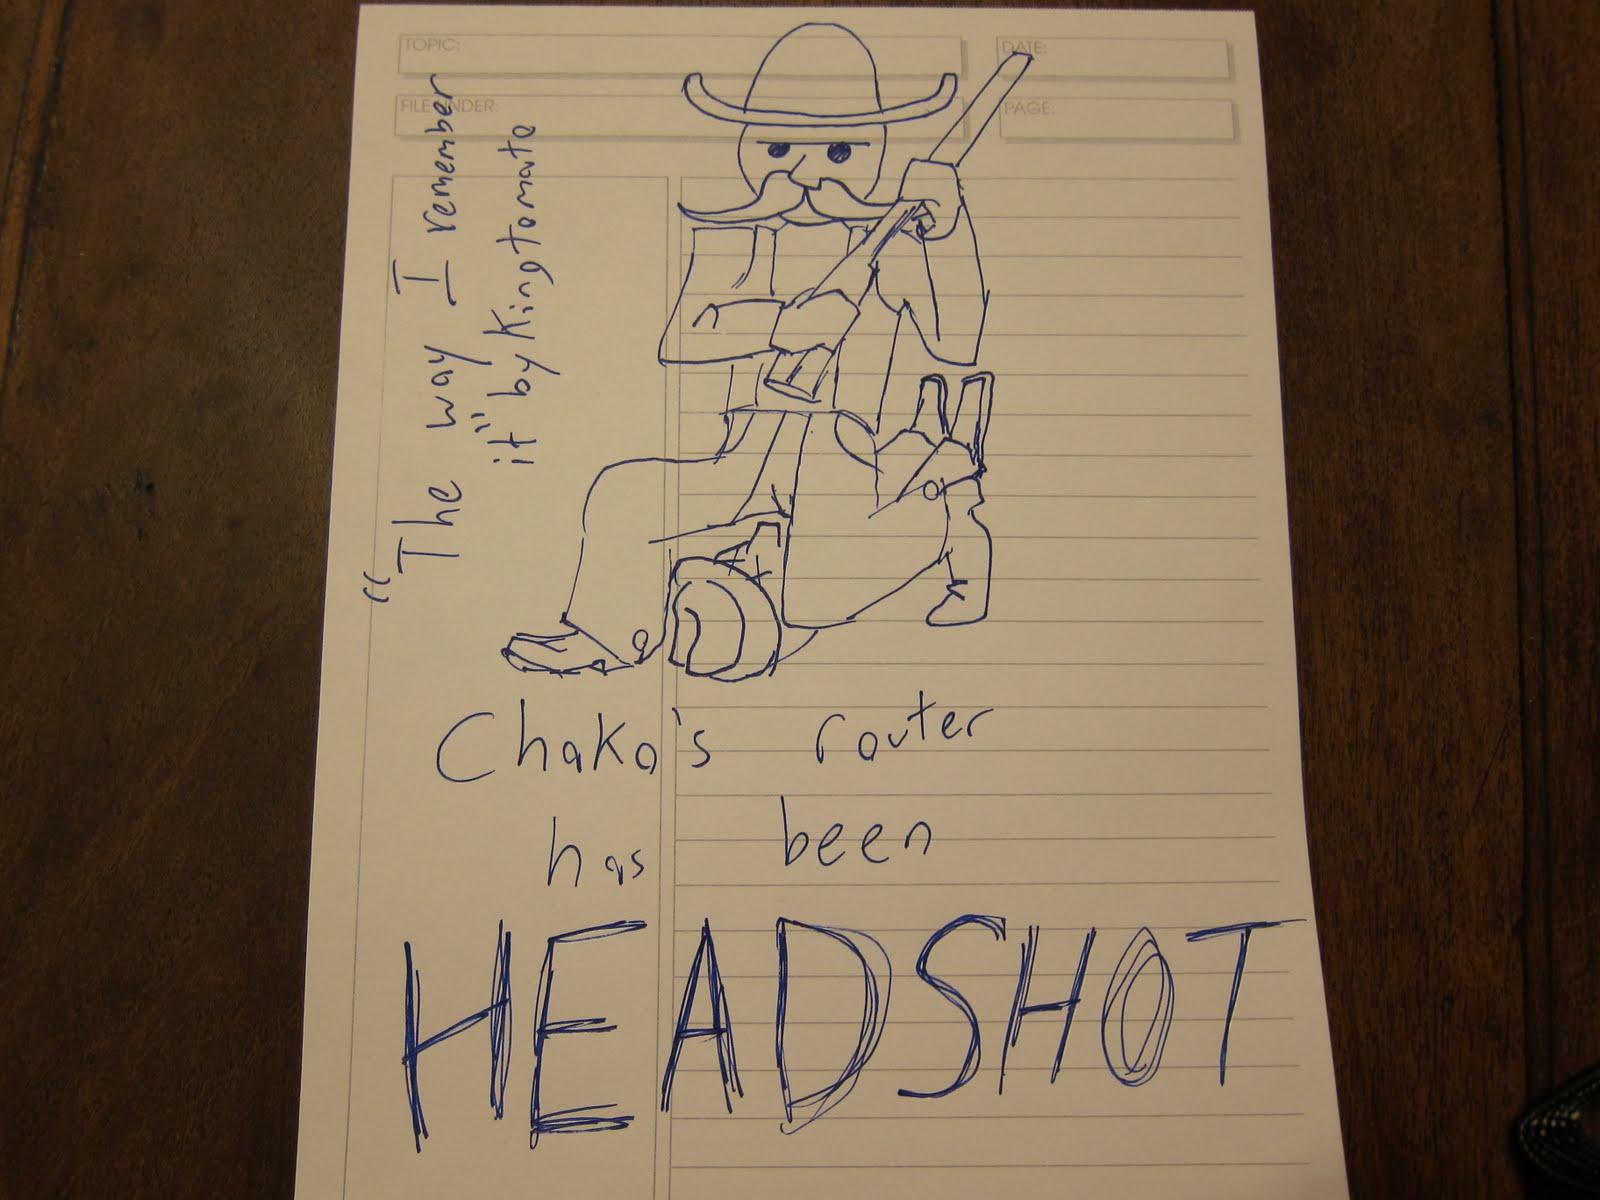 TOPIC:
DATE:
FILE UNDER:
PAGE:
"The way I remember
it" by Kingtomato
Chako's router
has been
HEADSHOT